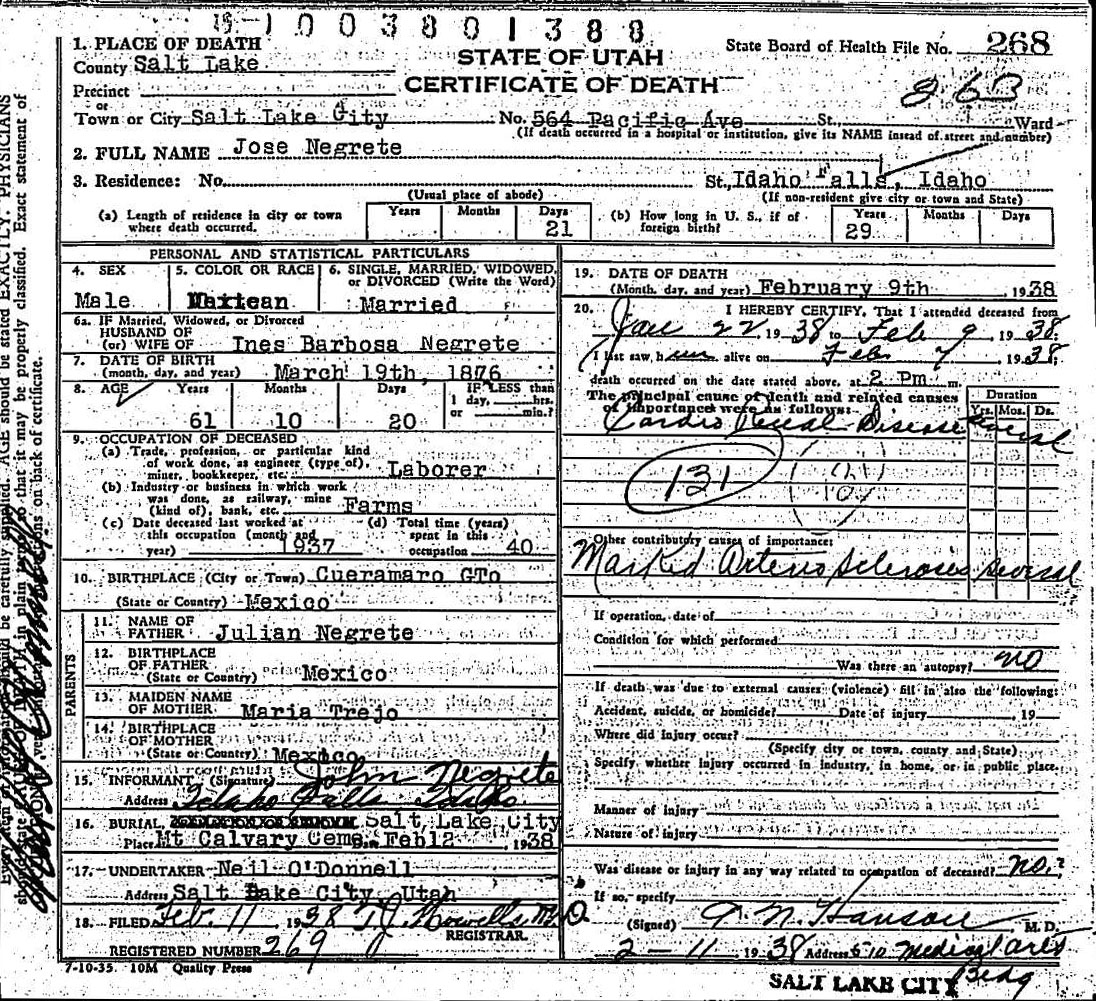 1003801388
1. PLACE OF DEATH
County Salt Lake
STATE OF UTAH
CERTIFICATE OF DEATH
State Board of Health File No. 268
263
Precinct
or
Town or City Salt Lake City No. 564 Pacific Ave St. Ward
(If death occurred in a hospital or institution, give its NAME instead of street and number)
2. FULL NAME Jose Negrete
3. Residence: No. St. Idaho Falls, Idaho
(Usual place of abode) (If non-resident give city or town and State)
(a) Length of residence in city or town where death occurred. Years Months Days 21
(b) How long in U. S., if of foreign birth? Years 29 Months Days
PERSONAL AND STATISTICAL PARTICULARS
4. SEX Male
5. COLOR OR RACE
6. SINGLE, MARRIED, WIDOWED, or DIVORCED (Write the Word) Married
6a. IF Married, Widowed, or Divorced
HUSBAND OF
(or) WIFE OF Ines Barbosa Negrete
7. DATE OF BIRTH
(month, day, and year) March 19th, 1876
8. AGE Years 61 Months 10 Days 20 IF LESS than 1 day, hrs. or min.?
9. OCCUPATION OF DECEASED
(a) Trade, profession, or particular kind
of work done, as engineer (type of),
miner, bookkeeper, etc. Laborer
(b) Industry or business in which work
was done, as railway, mine
(kind of), bank, etc. Farms
(c) Date deceased last worked at this occupation (month and year) 1937
(d) Total time (years) spent in this occupation 40
10. BIRTHPLACE (City or Town) Cueramaro GTo
(State or Country) Mexico
PARENTS
11. NAME OF
FATHER Julian Negrete
12. BIRTHPLACE
OF FATHER
(State or Country) Mexico
13. MAIDEN NAME
OF MOTHER Maria Trejo
14. BIRTHPLACE
OF MOTHER
(State or Country) Mexico
15. INFORMANT (Signature) John Negrete
Address Idaho Falls Idaho
16. BURIAL, Salt Lake City
Place Mt Calvary Ceme Feb12 1938
17. UNDERTAKER Neil O'Donnell
Address Salt Lake City, Utah
18. FILED Feb. 11 1938 T.J. Howells M.D.
REGISTRAR.
REGISTERED NUMBER 269
7-10-35. 10M Quality Press
19. DATE OF DEATH
(Month, day, and year) February 9th 1938
20. I HEREBY CERTIFY, That I attended deceased from
Jan 22, 1938 to Feb 9 1938
I last saw him alive on Feb 7 1938
death occurred on the date stated above, at 2 Pm m.
The principal cause of death and related causes
of importance were as follows:
Duration
Yrs. Mos. Ds.
Cardio Renal Disease several
131
Other contributory causes of importance:
Marked Arterio Sclerosis several
If operation, date of
Condition for which performed
Was there an autopsy? no
If death was due to external causes (violence) fill in also the following:
Accident, suicide, or homicide? Date of injury , 19
Where did injury occur?
(Specify city or town, county and State)
Specify whether injury occurred in industry, in home, or in public place.
Manner of injury
Nature of injury
Was disease or injury in any way related to occupation of deceased? no.?
If so, specify
(Signed) Hanson M. D.
2-11 1938 Address 610 Medical Arts
Bldg
SALT LAKE CITY